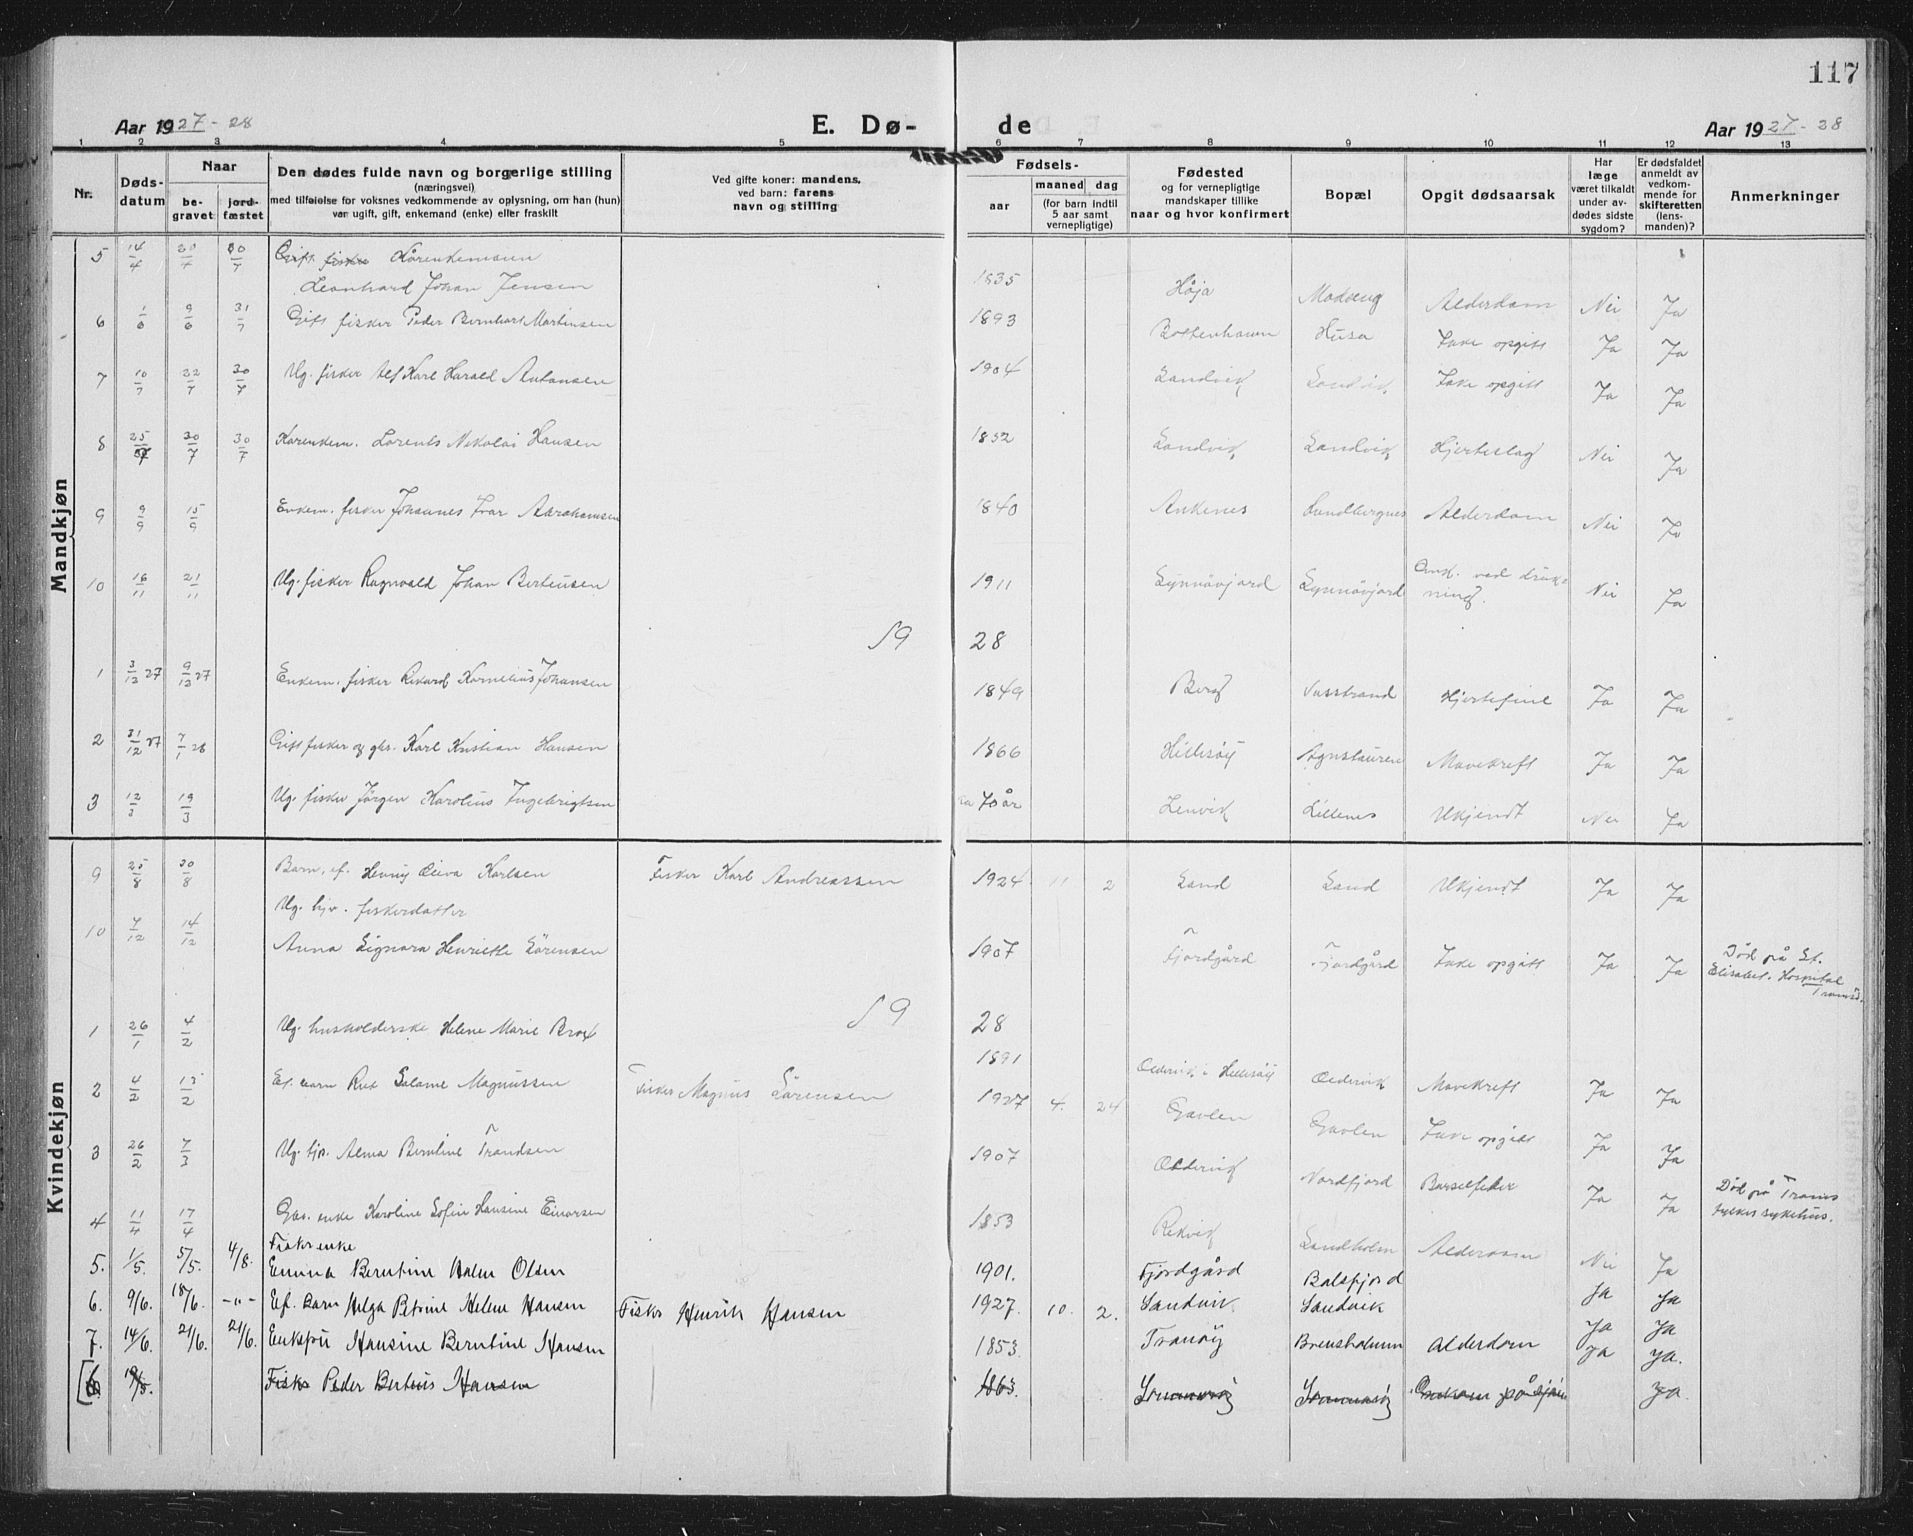 117
Aar 1927-28 E. Dø- de Aar 1927-28
1 2 3 4 5 6 7 8 9 10 11 12 13
Nr. Døds-datum Naar be-gravet jord-fæstet Den dødes fulde navn og borgerlige stilling (næringsvei) med tilføielse for voksnes vedkommende av oplysning, om han (hun) var ugift, gift, enkemand (enke) eller fraskilt Ved gifte koner: mandens, ved barn: farens navn og stilling Fødsels- aar maaned dag (for barn indtil 5 aar samt vernepligtige) Fødested og for vernepligtige mandskaper tillike naar og hvor konfirmert Bopæl Opgit dødsaarsak Har læge været tilkaldt under av-dødes sidste sygdom? Er dødsfaldet anmeldt av vedkom-mende for skifteretten (lens-manden)? Anmerkninger
Mandkjøn
5 14/4 30/7 30/7 Gift fisker Kårenkemann
Leonhard Johan Jensen 1835 Høja Alderdom Nei Ja
6 9/6 31/7 Gift fisker Peder Bernhart Martinsen 1893 Bottenhavn Husa Ikke opgitt Ja Ja
7 10/7 22/7 30/7 Ug. fisker Karl Harald Antonsen 1904 Sandvik Sandvik Ikke opgitt Ja Ja
8 25/7 30/7 30/7 Kårenkem. Lorents Nikolai Hansen 1852 Sandvik Sandvik Hjerteslag Nei Ja
9 9/9 15/9 Enkem. fisker Johannes Ivar Abrahamsen 1840 Ankenes Sandbergnes Alderdom Nei Ja
10 16/11 21/11 Ug. fisker Ragnvald Johan Berteusen 1911 Lynnövjord Lynnövjord Omk. ved druk-
ning. Nei Ja
19 28
1 3/12 27 9/12 27 Enkem. fisker Rikard Kornelius Johansen 1849 Berg Hjertefeil Ja Ja
2 31/12 27 7/1 28 Gift fisker og gbr. Karl Kristian Hansen 1866 Hillesöy Mavekreft Ja Ja
3 12/3 19/3 Ug. fisker Jörgen Karolius Ingebrigtsen ca 70 år Lenvik Lillenes Ukjendt Nei Ja
Kvindekjøn
9 25/8 30/8 Barn, ef. Henny Oliva Karlsen Fisker Karl Andreassen 1924 11 2 Sand Sand Ukjendt Ja Ja
Ug. hjv. fiskerdatter
10 7/12 14/12 Anna Signora Henriette Sörensen 1907 Fjordgård Fjordgård Ikke opgitt Ja Ja Död på St.
Elisabet. Hospital
Tromsö.
19 28
1 26/1 4/2 Ug. husholderske Helene Marie Brox 1891 Oldervik i Hillesöy Oldervik Mavekreft Ja Ja
2 4/2 13/2 Ef. barn Rut Salome Magnussen Fisker Magnus Sörensen 1927 4. 24 Gavlen Gavlen Ikke opgitt Ja Ja
3 26/2 7/3 Ug. hjv. Alma Berntine Trondsen 1907 Oldervik Nordfjord Barselfeber Ja Ja Död på Troms
fylkes sykehus.
4 11/4 17/4 enke Karoline Sofie Hansine Einarsen 1853 Rekvik Sandholm Alderdom Nei Ja
Fiskerenke
5. 1/5. 5/5. 4/8. Emma Berntine Olsen 1901. Fjordgård Balsfjord Ja Ja
6. 9/6. 18/6. -"- Ef. Barn Helga Petrine Helene Hansen Fisker Henrik Hansen 1927. 10. 2. Sandvik Sandvik Ja Ja
7. 14/6. 21/6. 21/6. Enkefru Hansine Berntine Hansen 1853. Tranöy Brensholmen Alderdom Ja Ja.
[6 19/5. Fisker Peder Berteus Hansen 1863. Omkom på sjöen Ja.